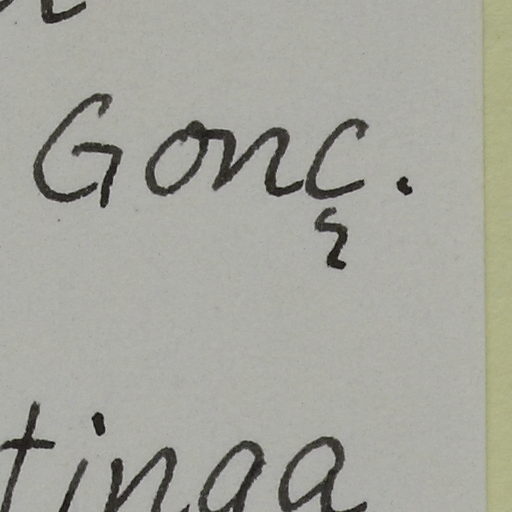 Gonç.
tinga